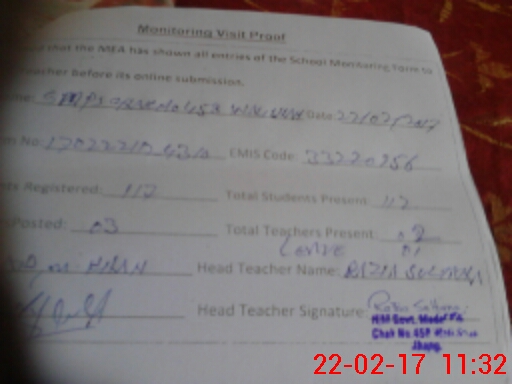 Monitoring Visit Proof
that the MEA has shown all entries of the School Monitoring Form to
teacher before its online submission.
Date: 22/02/2017
No: EMIS Code: 33220956
nts Registered: 112 Total Students Present: 112
Posted: 03 Total Teachers Present: 02
Leave 01
Head Teacher Name: RAZIA SULTANA
Head Teacher Signature: Razia Sultana
HM Govt. Model
Chak No. 458
Jhang.
22-02-17 11:32